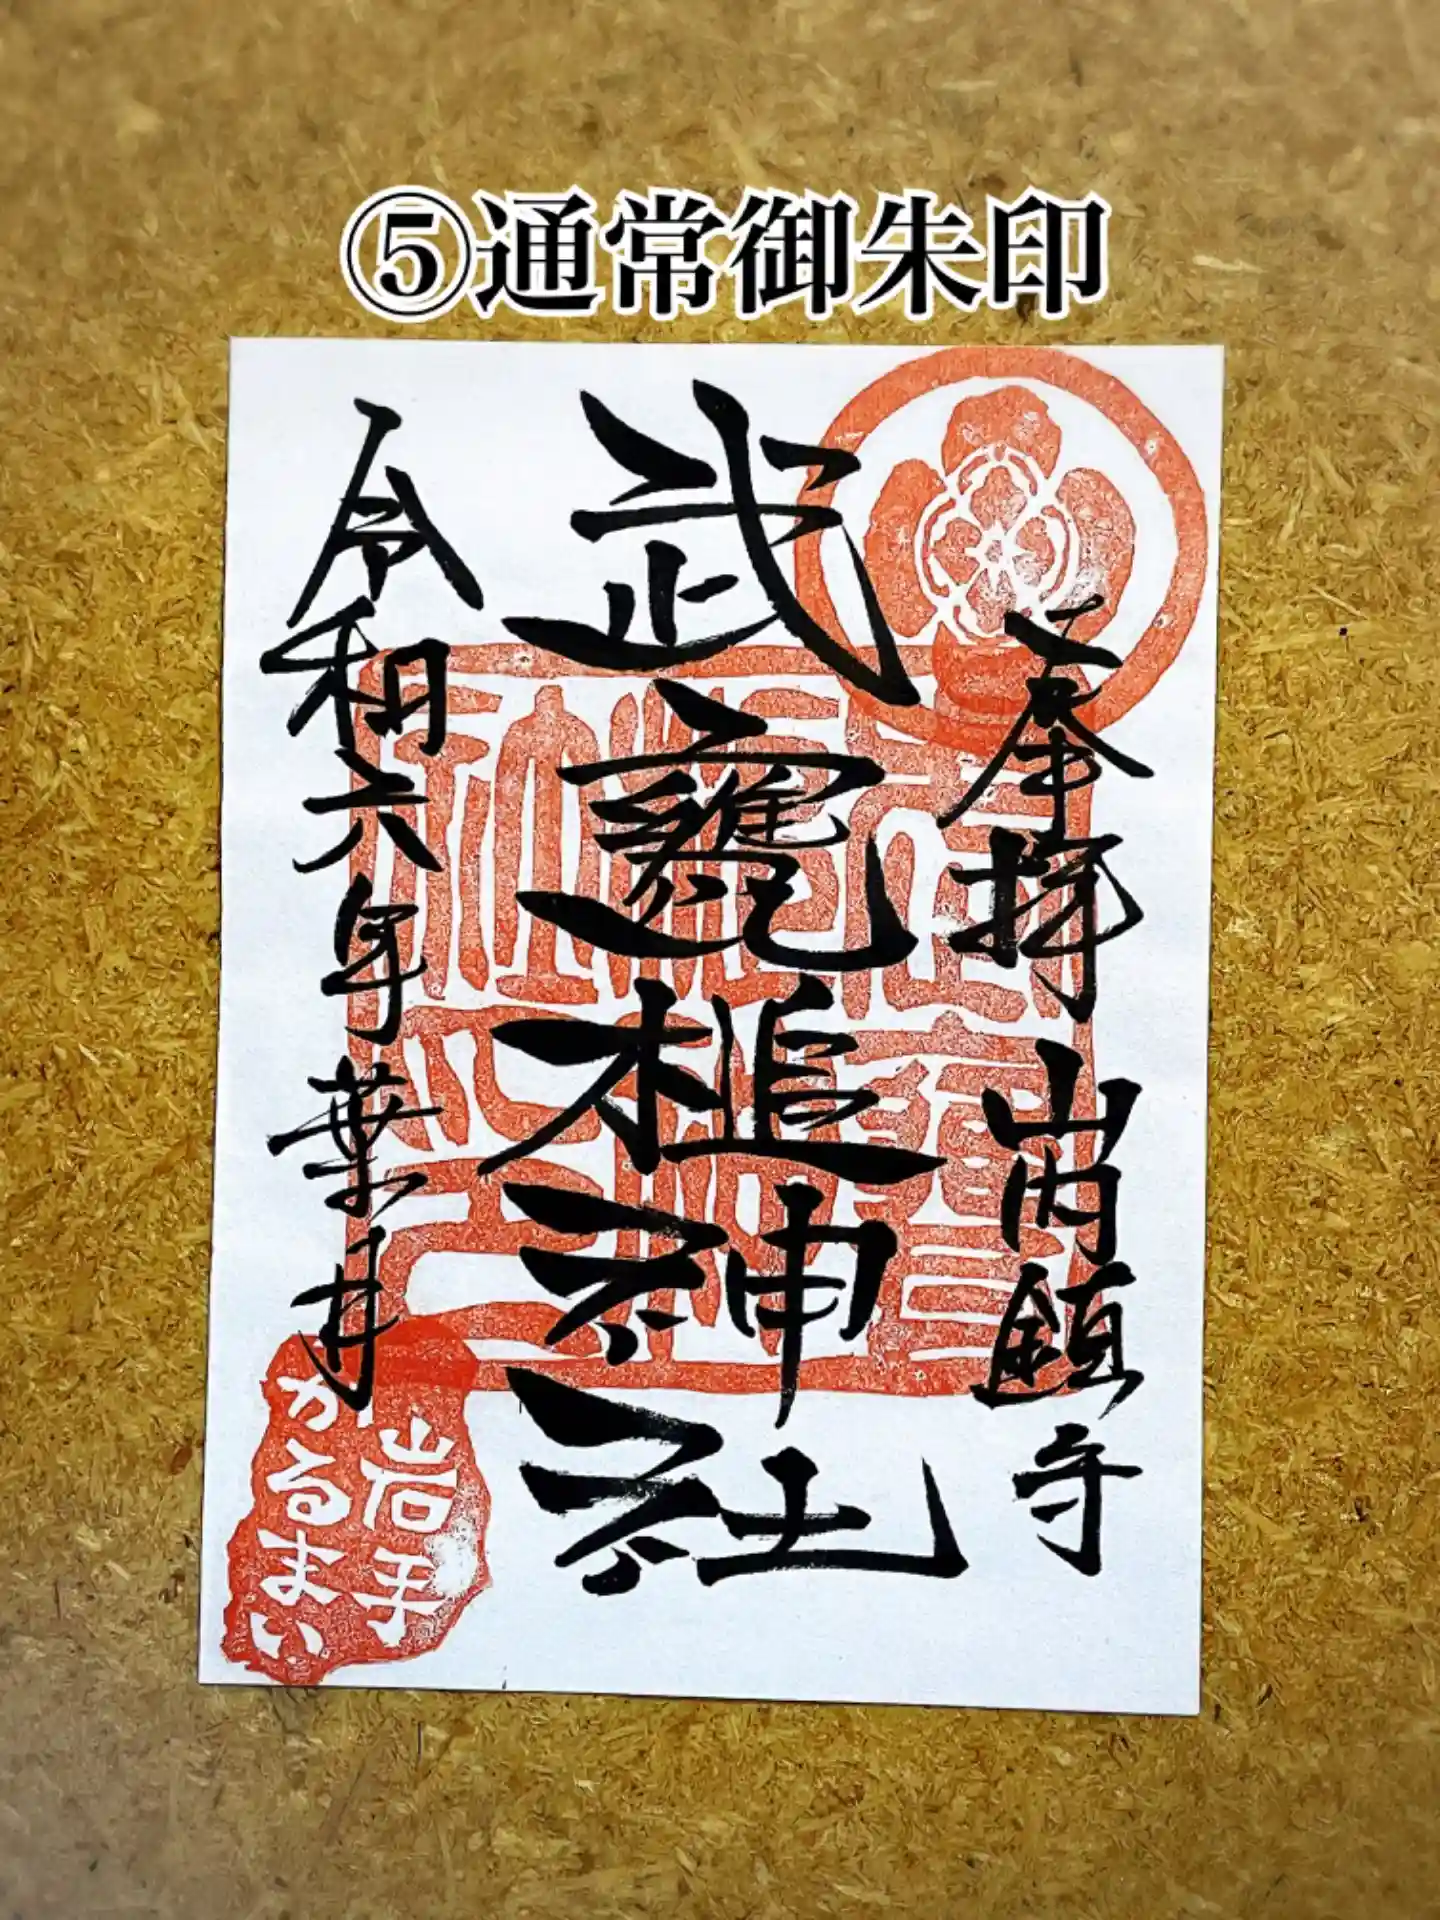 ⑤通常御朱印
奉拝 山内鎮守
武甕槌神社
令和六年葉月
岩手
かるまい